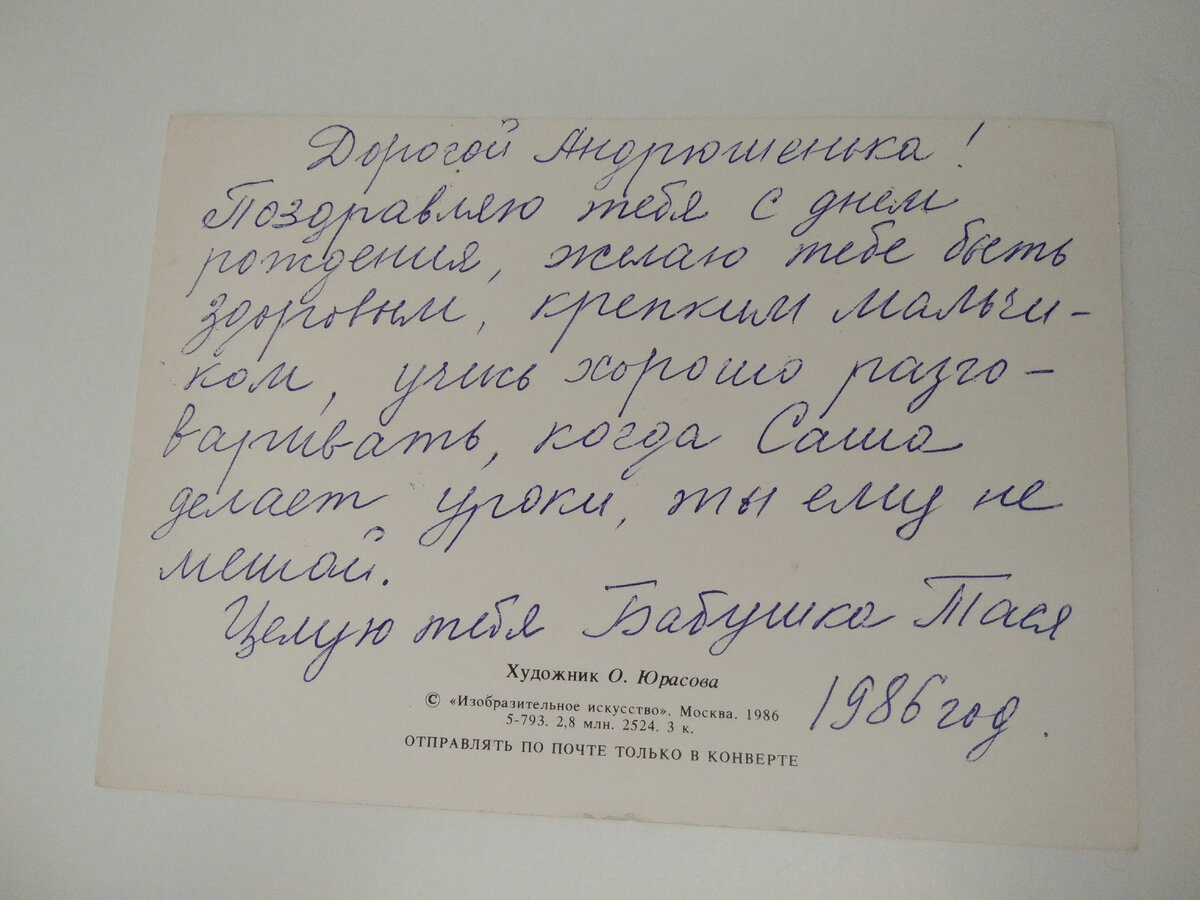 Дорогой Андрюшенька!
Поздравляю тебя с днем
рождения, желаю тебе быть
здоровым, крепким мальчи-
ком, учись хорошо разго-
варивать, когда Саша
делает уроки, ты ему не
мешай.
Целую тебя Бабушка Тася
Художник О. Юрасова
© «Изобразительное искусство». Москва. 1986
5-793. 2,8 млн. 2524. 3 к.
1986 год.
ОТПРАВЛЯТЬ ПО ПОЧТЕ ТОЛЬКО В КОНВЕРТЕ